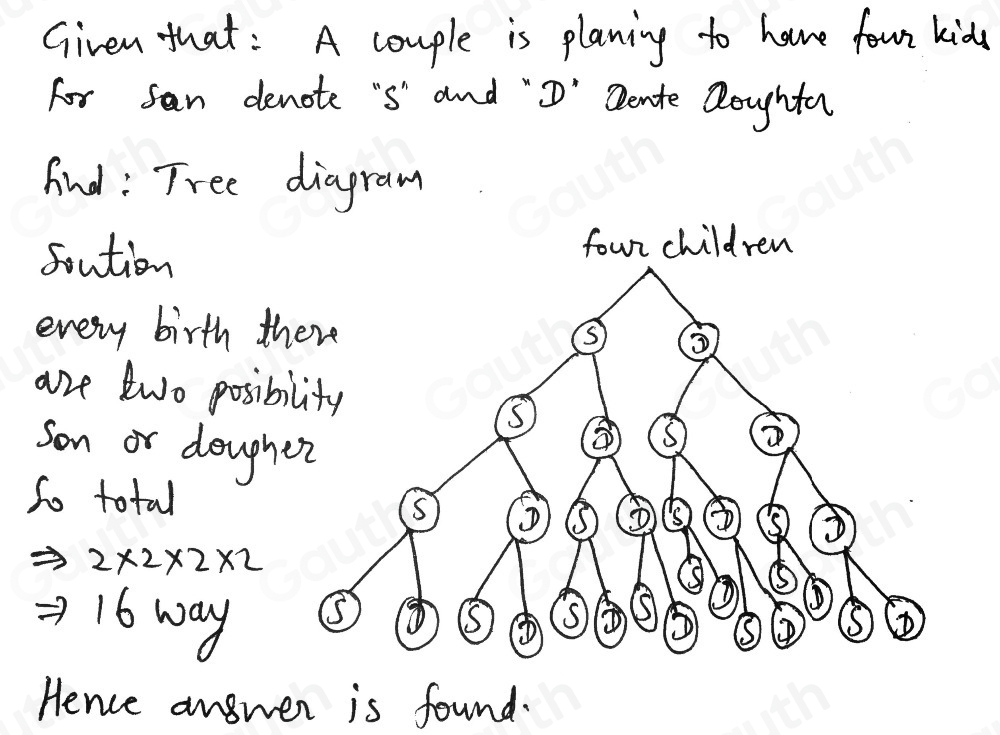 Given that: A couple is planing to have four kids
for san denote "S" and "D" Dente Doughter
find: Tree diagram
Soution
four children
every birth there
are two posibility
Son or dougher
So total
⇒ 2×2×2×2
⇒ 16 way
S D
S D S D
S D S D S D S D
S D S D S D S D S D S D S D S D
Hence answer is found.